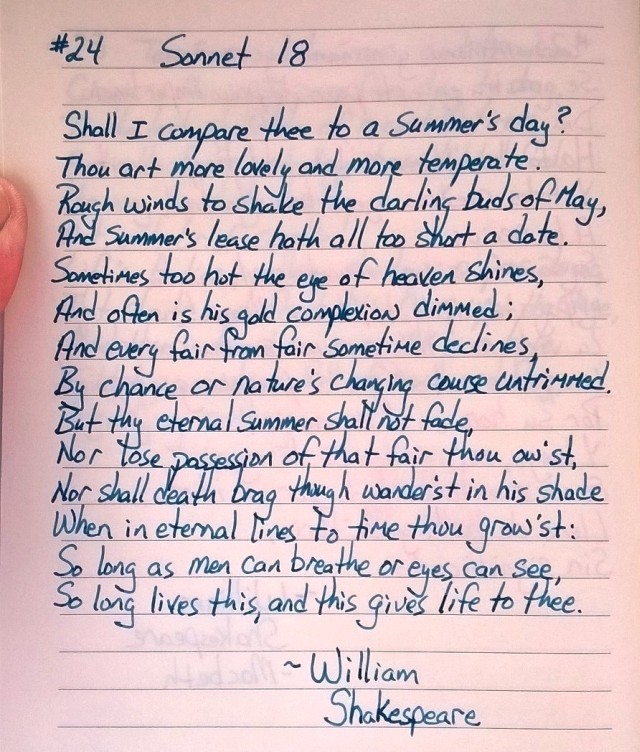 #24 Sonnet 18
Shall I compare thee to a Summer's day?
Thou art more lovely and more temperate.
Rough winds to shake the darling buds of May,
And Summer's lease hath all too short a date.
Sometimes too hot the eye of heaven shines,
And often is his gold complexion dimmed;
And every fair from fair sometime declines,
By chance or nature's changing course untrimmed.
But thy eternal summer shall not fade,
Nor lose possession of that fair thou ow'st,
Nor shall death brag though wander'st in his shade
When in eternal lines to time thou grow'st:
So long as men can breathe or eyes can see,
So long lives this, and this gives life to thee.
~ William
Shakespeare
Shakespeare
~Macbeth